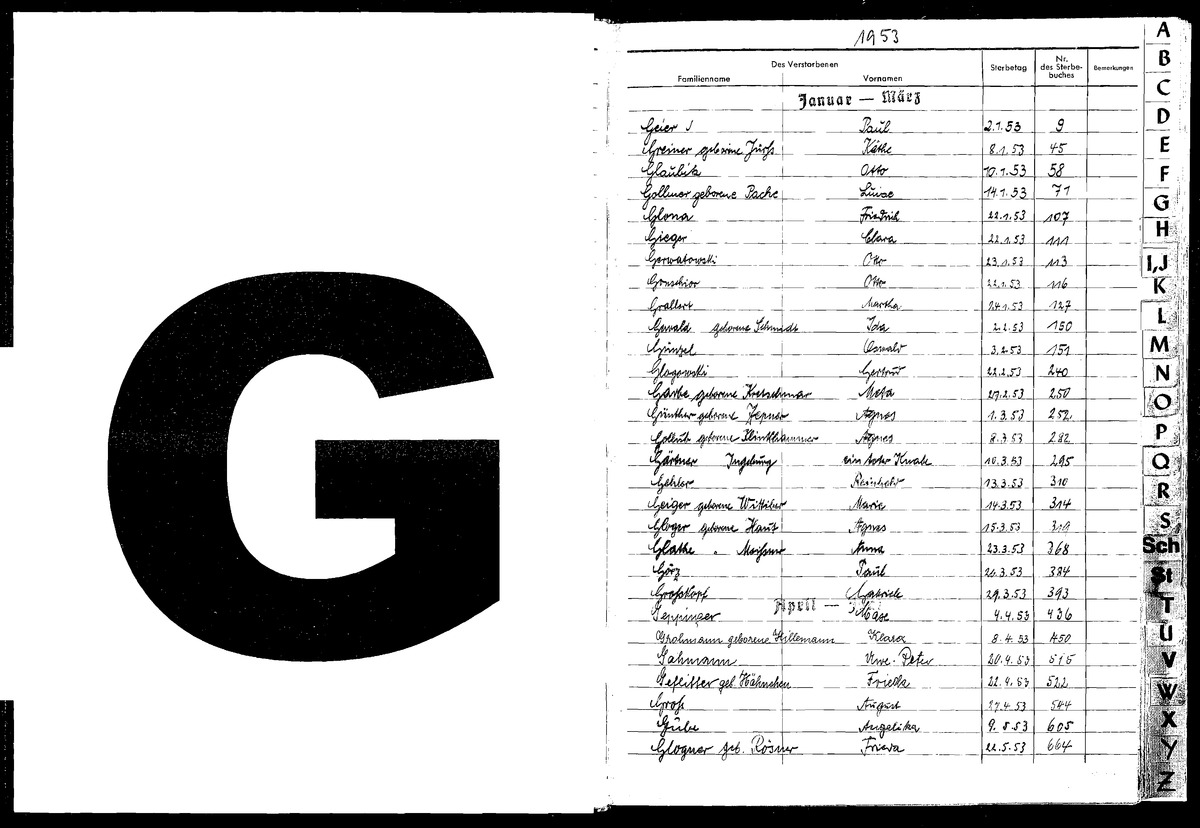 G
1953
Des Verstorbenen
Familienname Vornamen Sterbetag Nr. des Sterbebuches Bemerkungen
Januar — März
Geier Paul 2.1.53 9
Greiner geborene Käthe 8.1.53 45
Glaubitz Otto 10.1.53 58
Gollmer geborene Pache Luise 14.1.53 71
Glona Friedrich 22.1.53 107
Gieger Clara 22.1.53 111
Gerwatowski Otto 23.1.53 113
Otto 22.1.53 116
Grallert Martha 24.1.53 127
Gewald geborene Schmidt Ida 2.2.53 150
Günzel Oswald 3.2.53 151
Glogowski Gertrud 22.2.53 240
Garbe geborene Kretschmar Meta 27.2.53 250
Günther geborene Zepner Agnes 1.3.53 252
Gollub geborene Klinkhammer Agnes 8.3.53 282
Gärtner Ingeburg ein toter Knabe 10.3.53 295
Gehler Reinhold 13.3.53 310
Geiger geborene Wittiber Marie 14.3.53 314
Gloger geborene Haut Agnes 15.3.53 319
Glathe " Meissner Anna 23.3.53 368
Görz Paul 26.3.53 384
Großkopf Gabriele 29.3.53 393
April —
Geppinger 4.4.53 436
Grohmann geborene Hillemann Klara 8.4.53 450
Gahmann Uwe-Peter 20.4.53 515
geb Hähnchen Frieda 22.4.53 522
Groß August 27.4.53 544
Gübe Angelika 9.5.53 605
Glogner geb. Rösner Frieda 22.5.53 664
A
B
C
D
E
F
G
H
I,J
K
L
M
N
O
P
Q
R
S
Sch
St
T
U
V
W
X
Y
Z